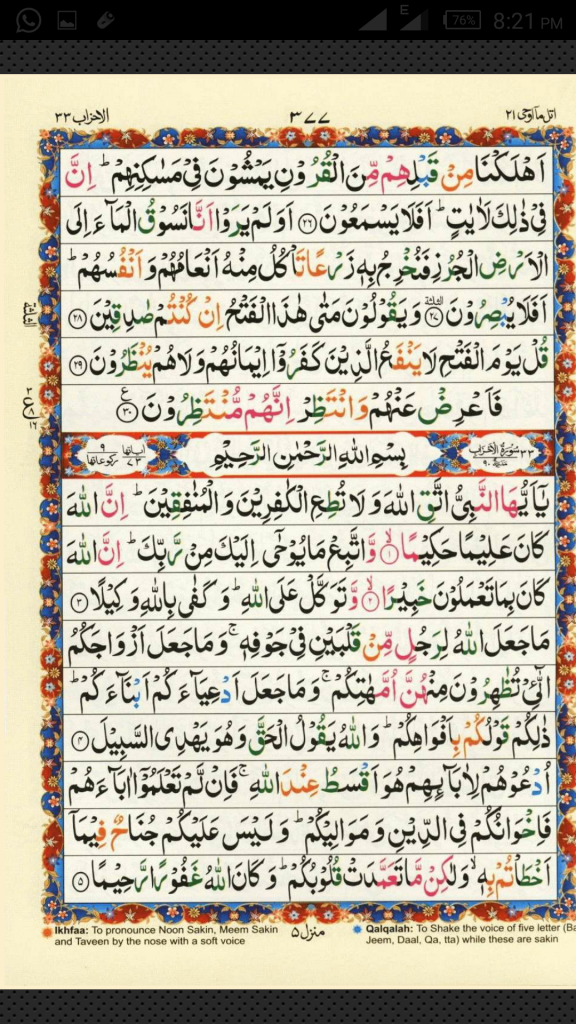 E 76% 8:21 PM
الاحزاب ٣٣ ٣٧٧ اتل مآ اوحی ٢١
اَهۡلَكۡنَا مِنۡ قَبۡلِهِمۡ مِّنَ الۡقُرُوۡنِ يَمۡشُوۡنَ فِىۡ مَسٰكِنِهِمۡ‌ؕ اِنَّ
فِىۡ ذٰلِكَ لَاٰيٰتٍ‌ؕ اَفَلَا يَسۡمَعُوۡنَ ﴿٢٦﴾ اَوَلَمۡ يَرَوۡا اَنَّا نَسُوۡقُ الۡمَآءَ اِلَى
الۡاَرۡضِ الۡجُرُزِ فَنُخۡرِجُ بِهٖ زَرۡعًا تَاۡكُلُ مِنۡهُ اَنۡعَامُهُمۡ وَاَنۡفُسُهُمۡ‌ؕ
اَفَلَا يُبۡصِرُوۡنَ ﴿٢٧﴾ وَيَقُوۡلُوۡنَ مَتٰى هٰذَا الۡفَتۡحُ اِنۡ كُنۡتُمۡ صٰدِقِيۡنَ ﴿٢٨﴾
قُلۡ يَوۡمَ الۡفَتۡحِ لَا يَنۡفَعُ الَّذِيۡنَ كَفَرُوۡۤا اِيۡمَانُهُمۡ وَلَا هُمۡ يُنۡظَرُوۡنَ ﴿٢٩﴾
فَاَعۡرِضۡ عَنۡهُمۡ وَانْتَظِرۡ اِنَّهُمۡ مُّنۡتَظِرُوۡنَ ﴿٣٠﴾
٣٣ سُوۡرَةُ الۡاَحۡزَابِ ٩٠ بِسۡمِ اللهِ الرَّحۡمٰنِ الرَّحِيۡمِ اٰيَاتُهَا ٧٣ رُكُوۡعَاتُهَا ٩
يٰۤاَيُّهَا النَّبِىُّ اتَّقِ اللّٰهَ وَلَا تُطِعِ الۡكٰفِرِيۡنَ وَالۡمُنٰفِقِيۡنَ‌ؕ اِنَّ اللّٰهَ
كَانَ عَلِيۡمًا حَكِيۡمًا ۙ‏﴿١﴾ وَّاتَّبِعۡ مَا يُوۡحٰٓى اِلَيۡكَ مِنۡ رَّبِّكَ‌ؕ اِنَّ اللّٰهَ
كَانَ بِمَا تَعۡمَلُوۡنَ خَبِيۡرًا ۙ‏﴿٢﴾ وَّتَوَكَّلۡ عَلَى اللّٰهِ‌ؕ وَكَفٰى بِاللّٰهِ وَكِيۡلًا ﴿٣﴾
مَا جَعَلَ اللّٰهُ لِرَجُلٍ مِّنۡ قَلۡبَيۡنِ فِىۡ جَوۡفِهٖ‌ۚ وَمَا جَعَلَ اَزۡوَاجَكُمُ
الّٰٓـئِْ تُظٰهِرُوۡنَ مِنۡهُنَّ اُمَّهٰتِكُمۡ‌ۚ وَمَا جَعَلَ اَدۡعِيَآءَكُمۡ اَبۡنَآءَكُمۡ‌ؕ
ذٰلِكُمۡ قَوۡلُـكُمۡ بِاَفۡوَاهِكُمۡ‌ؕ وَاللّٰهُ يَقُوۡلُ الۡحَقَّ وَهُوَ يَهۡدِى السَّبِيۡلَ ﴿٤﴾
اُدۡعُوۡهُمۡ لِاٰبَآئِهِمۡ هُوَ اَقۡسَطُ عِنۡدَ اللّٰهِ‌ۚ فَاِنۡ لَّمۡ تَعۡلَمُوۡۤا اٰبَآءَهُمۡ
فَاِخۡوَانُكُمۡ فِى الدِّيۡنِ وَمَوَالِيۡكُمۡ‌ؕ وَلَيۡسَ عَلَيۡكُمۡ جُنَاحٌ فِيۡمَاۤ
اَخۡطَاۡتُمۡ بِهٖۙ وَلٰكِنۡ مَّا تَعَمَّدَتۡ قُلُوۡبُكُمۡ‌ؕ وَكَانَ اللّٰهُ غَفُوۡرًا رَّحِيۡمًا ﴿٥﴾
Ikhfaa: To pronounce Noon Sakin, Meem Sakin
and Taveen by the nose with a soft voice
منزل ٥
Qalqalah: To Shake the voice of five letter (Ba
Jeem, Daal, Qa, tta) while these are sakin